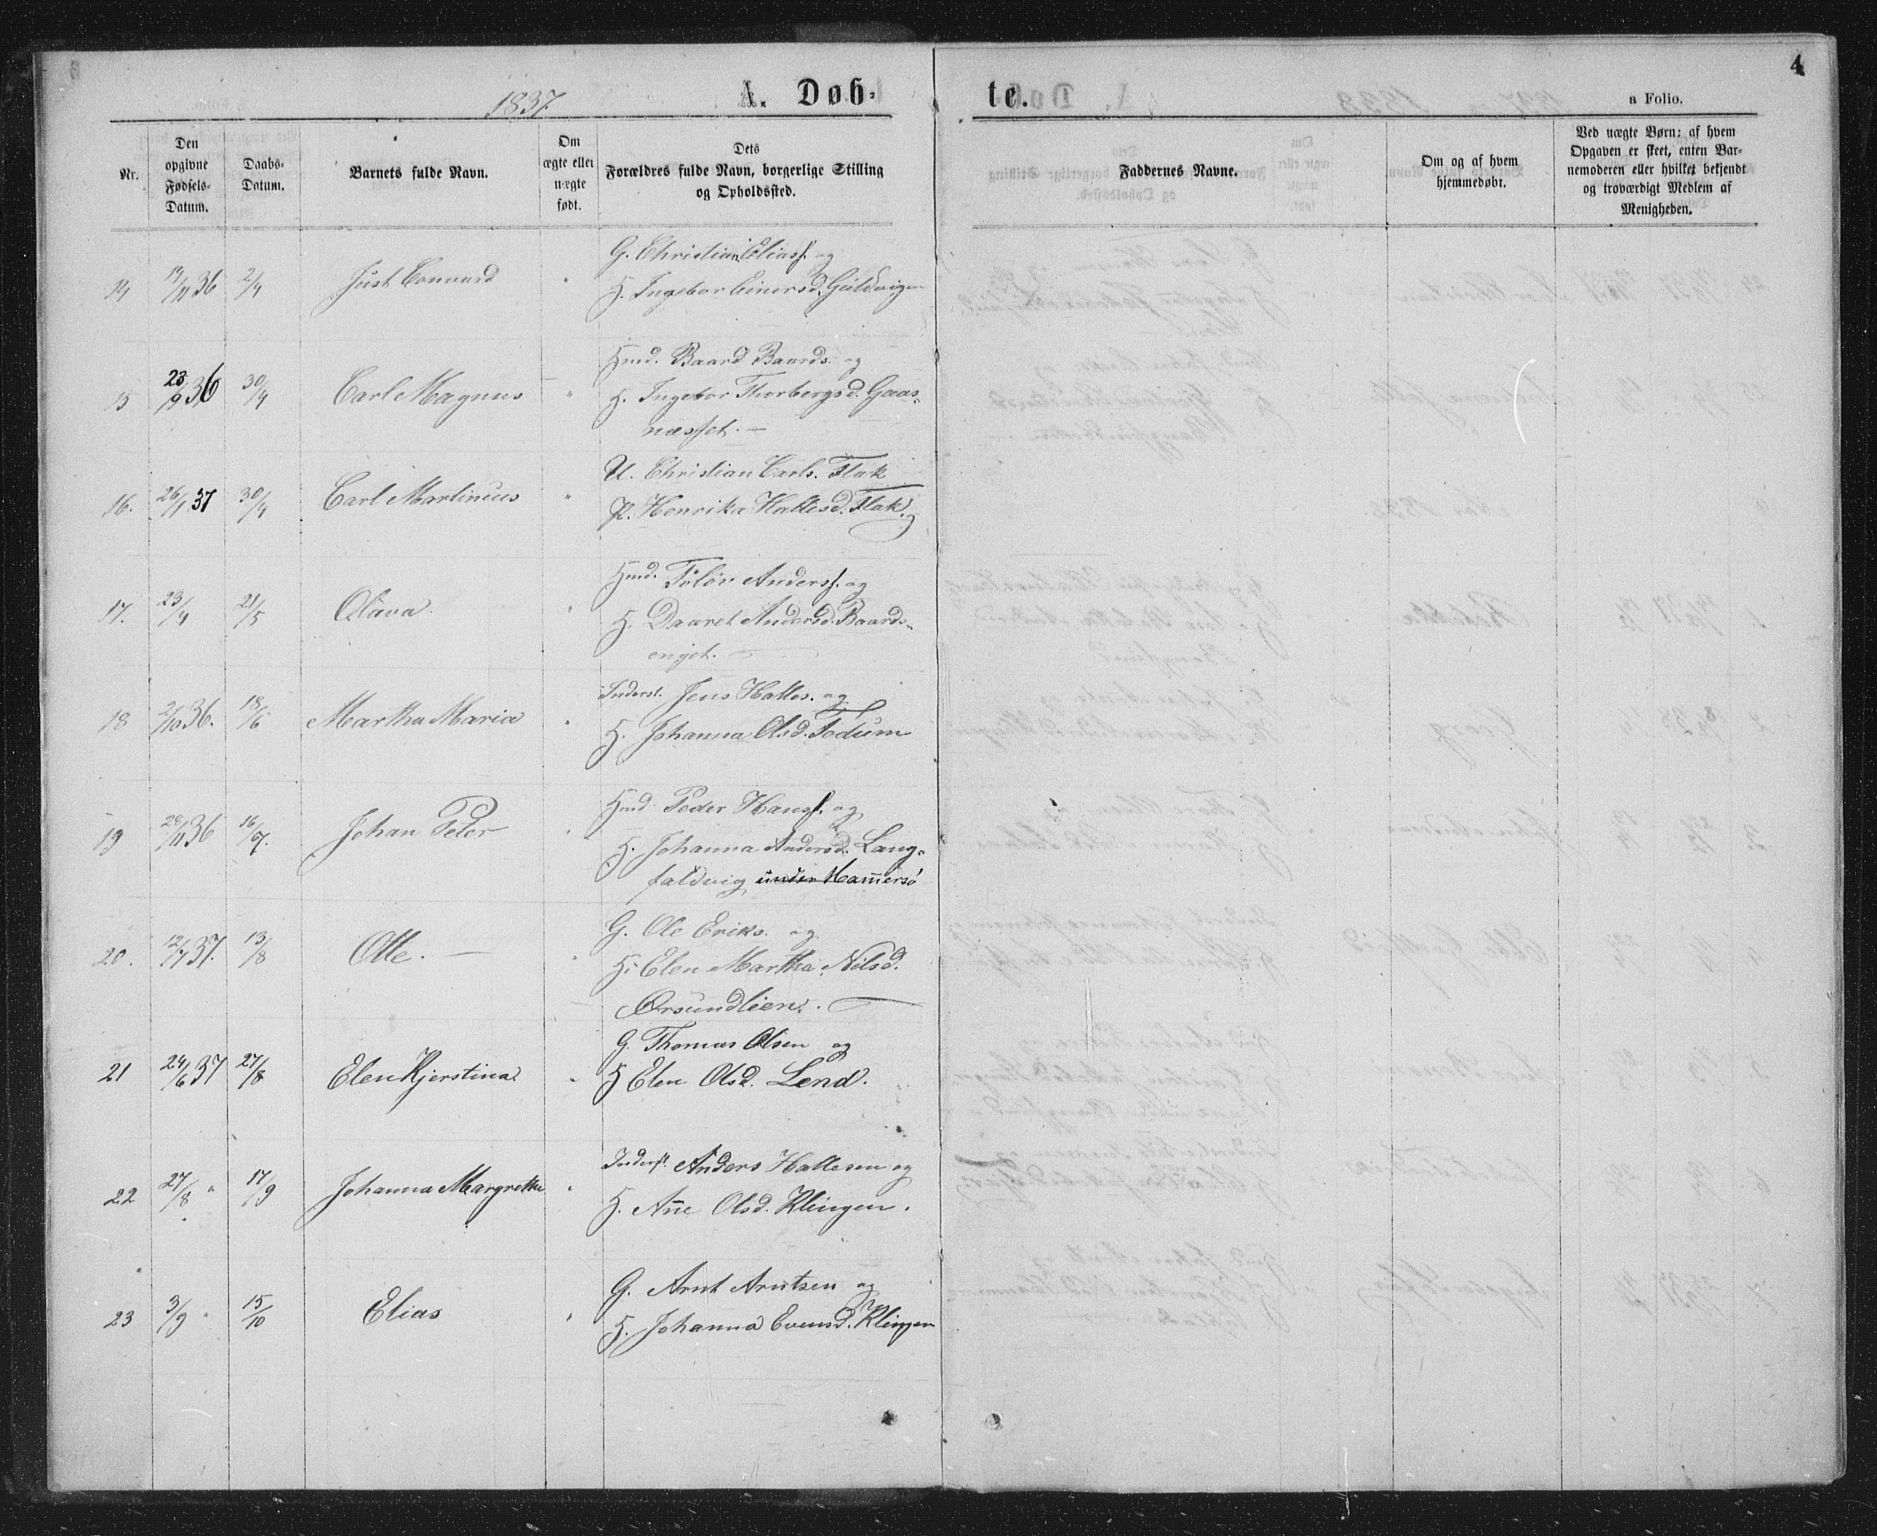 1837.
A. Døb-
te.
4
a Folio.
Nr.
Den opgivne Fødsels-Datum.
Daabs-Datum.
Barnets fulde Navn.
Om ægte eller uægte født.
Dets Forældres fulde Navn, borgerlige Stilling og Opholdssted.
Faddernes Navne.
Om og af hvem hjemmedøbt.
Ved uægte Børn: af hvem Opgaven er skeet, enten Barnemoderen eller hvilket bekjendt og troværdigt Medlem af Menigheden.
G. Christian Elias. og
14 13/11 36 2/4 Just Connard " H. Ingebor Einersd. Guldvigen
Hmd. Baard Baards. og
15 23/9 36 30/4 Carl Magnus " H. Ingebor Thorbergsd. Gaas-
næsset.
U. Christian Carls. Flak
16. 26/1 37 30/4 Carl Martinus " P. Henrika Hallesd. Flak.
Hmd. Tolov Anders. og
17. 23/4 21/5 Olava " H. Daaret Andersd. Baards-
enget.
Inderst. Jens Halles. og
18 2/10 36. 18/6 Martha Maria " H. Johanna Olsd. Fodum
Hmd. Peder Hans. og
19 20/11 36 16/7. Johan Peter " H. Johanna Andersd. Lang-
faldvig under Hammersö
G. Ole Eriks. og
20. 12/7 37. 13/8 Otte. " H. Elen Martha Nilsd.
Örsundlien.
G. Thomas Olsen og
21 24/6 37 27/8 Elen Kjerstina " H Elen Olsd. Lend.
Inderst. Anders Hallesen og
22 27/8 " 17/9 Johanna Margretha " H. Anne Olsd. Klingen.
G. Arnt Arntsen og
23 3/9 " 15/10 Elias " H. Johanna Evensd. Klingen